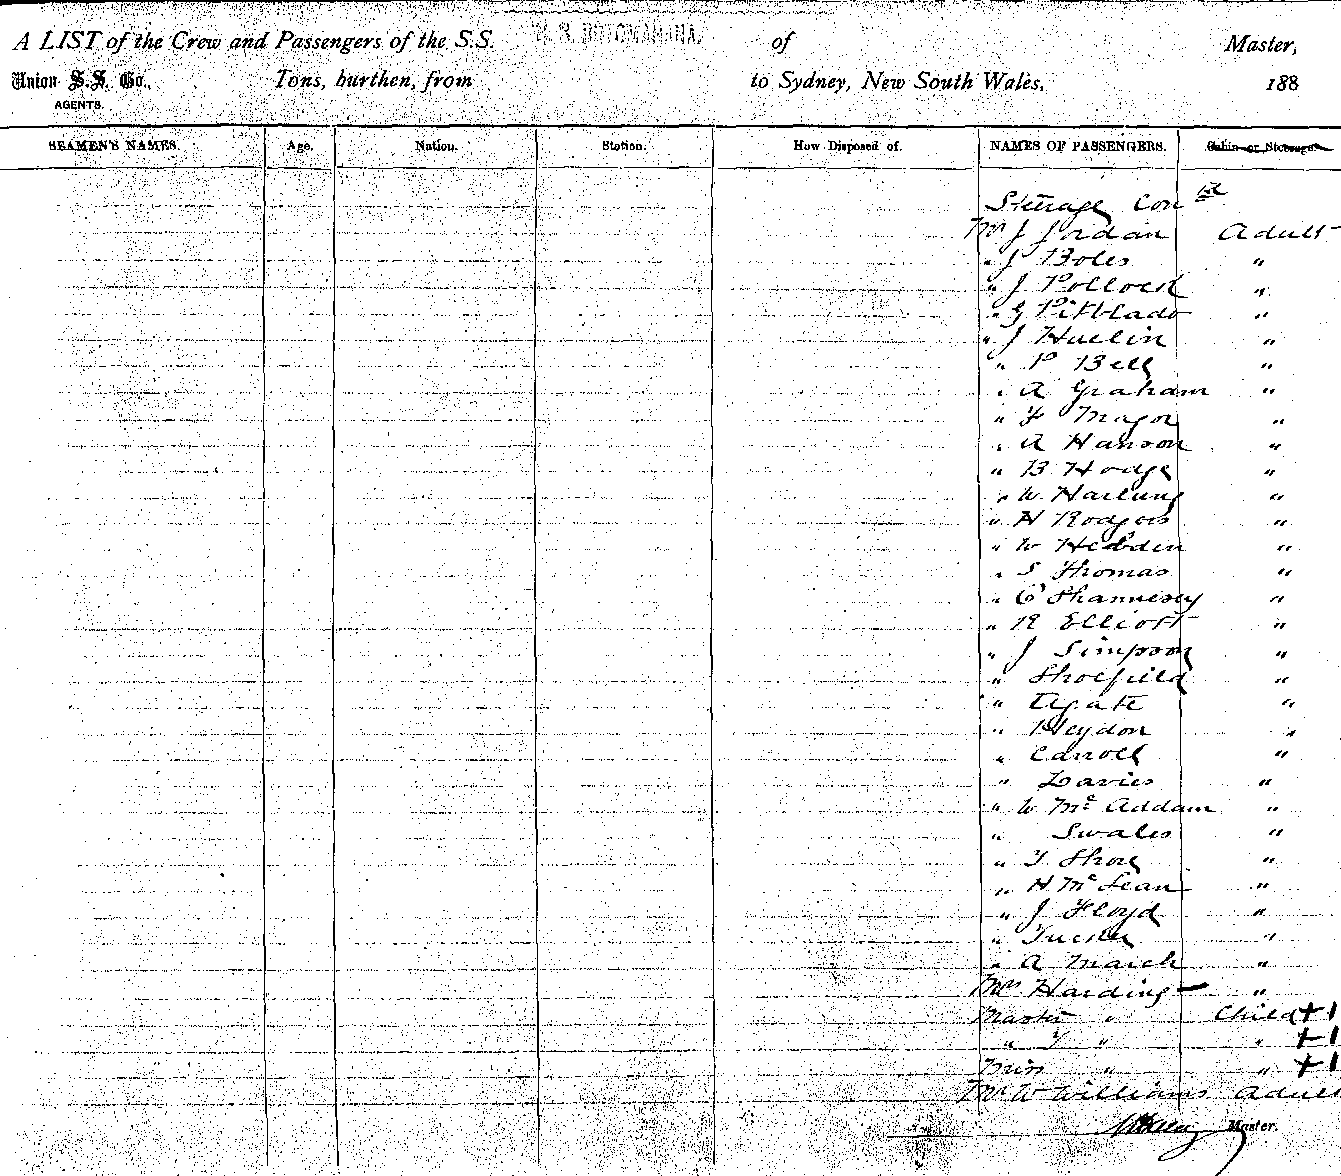 A LIST of the Crew and Passengers of the S.S. S.S. ROTOMAHANA. of Master,
Union S.S. Co., Tons, burthen, from to Sydney, New South Wales, 188
AGENTS.
SEAMEN'S NAMES. Age. Nation. Station. How Disposed of. NAMES OF PASSENGERS. Cabin or Steerage
Steerage Con
Mr J Jordan Adult
" J Boles "
" J Pollock "
" G Pitblado "
" J Huelin "
" P Bell "
" A Graham "
" F Major "
" A Hanson "
" B Hodge "
" W Hartung "
" H Rodgers "
" W Hebden "
" S Thomas "
" O'Shannesey "
" R Elliott "
" J Simpson "
" Sholfield "
" Agate "
" Heydon "
" Carroll "
" Davies "
" W Mc Addam "
" Swales "
" T Shore "
" H McLean "
" J Floyd "
" Tucker "
" A March "
Mrs Harding "
Master " Child +1
" " " +1
Miss " " +1
Mr W Williams Adult
Master.